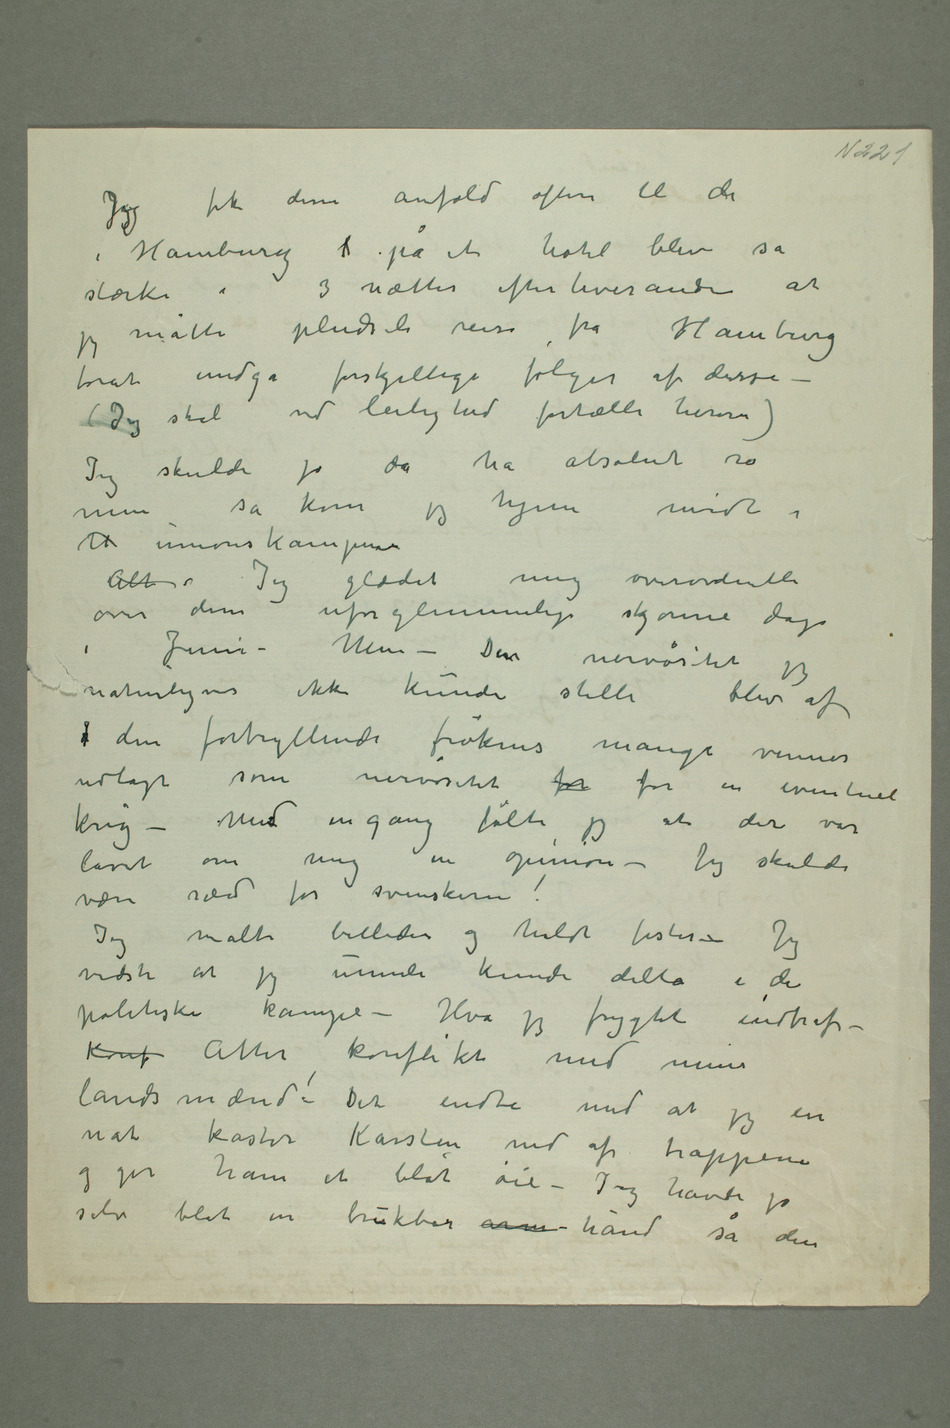 N 221
Jeg fik dem anfald oftere til de
i Hamburg på et hotel blev så
stærke i 3 nætter efterhverandre at
jeg måtte pludseli reise fra Hamburg
forat undgå forskjellige følger af disse –
(Jeg skal ved leilighed fortælle herom)
Jeg skulde jo da ha absolut ro
men så kom jeg hjem midt i
unionskampen
Alt Jeg glædet mig overordentli
over dem uforglemmelige skjønne dage
i Juni – Men – Den nervøsitet jeg
naturligvis ikke kunde stille blev af
den fortryllende frøkens mange venner
udlagt som nervøsitet for for en eventuel
krig – Med engang følte jeg at der var
lavet om mig en opinion – Jeg skulde
være ræd for svenskerne!
Jeg malte billeder og holdt fester – Jeg
vidste at jeg umuli kunde delta i de
politiske kampe – Hva jeg frygtet indtraf –
Konf Atter konflikt med mine
landsmænd! – Det endte med at jeg en
nat kaster Karsten ned af trappene
og gir ham et blåt øie – Jeg havde jo
selv blot en brukbar arm hånd så den